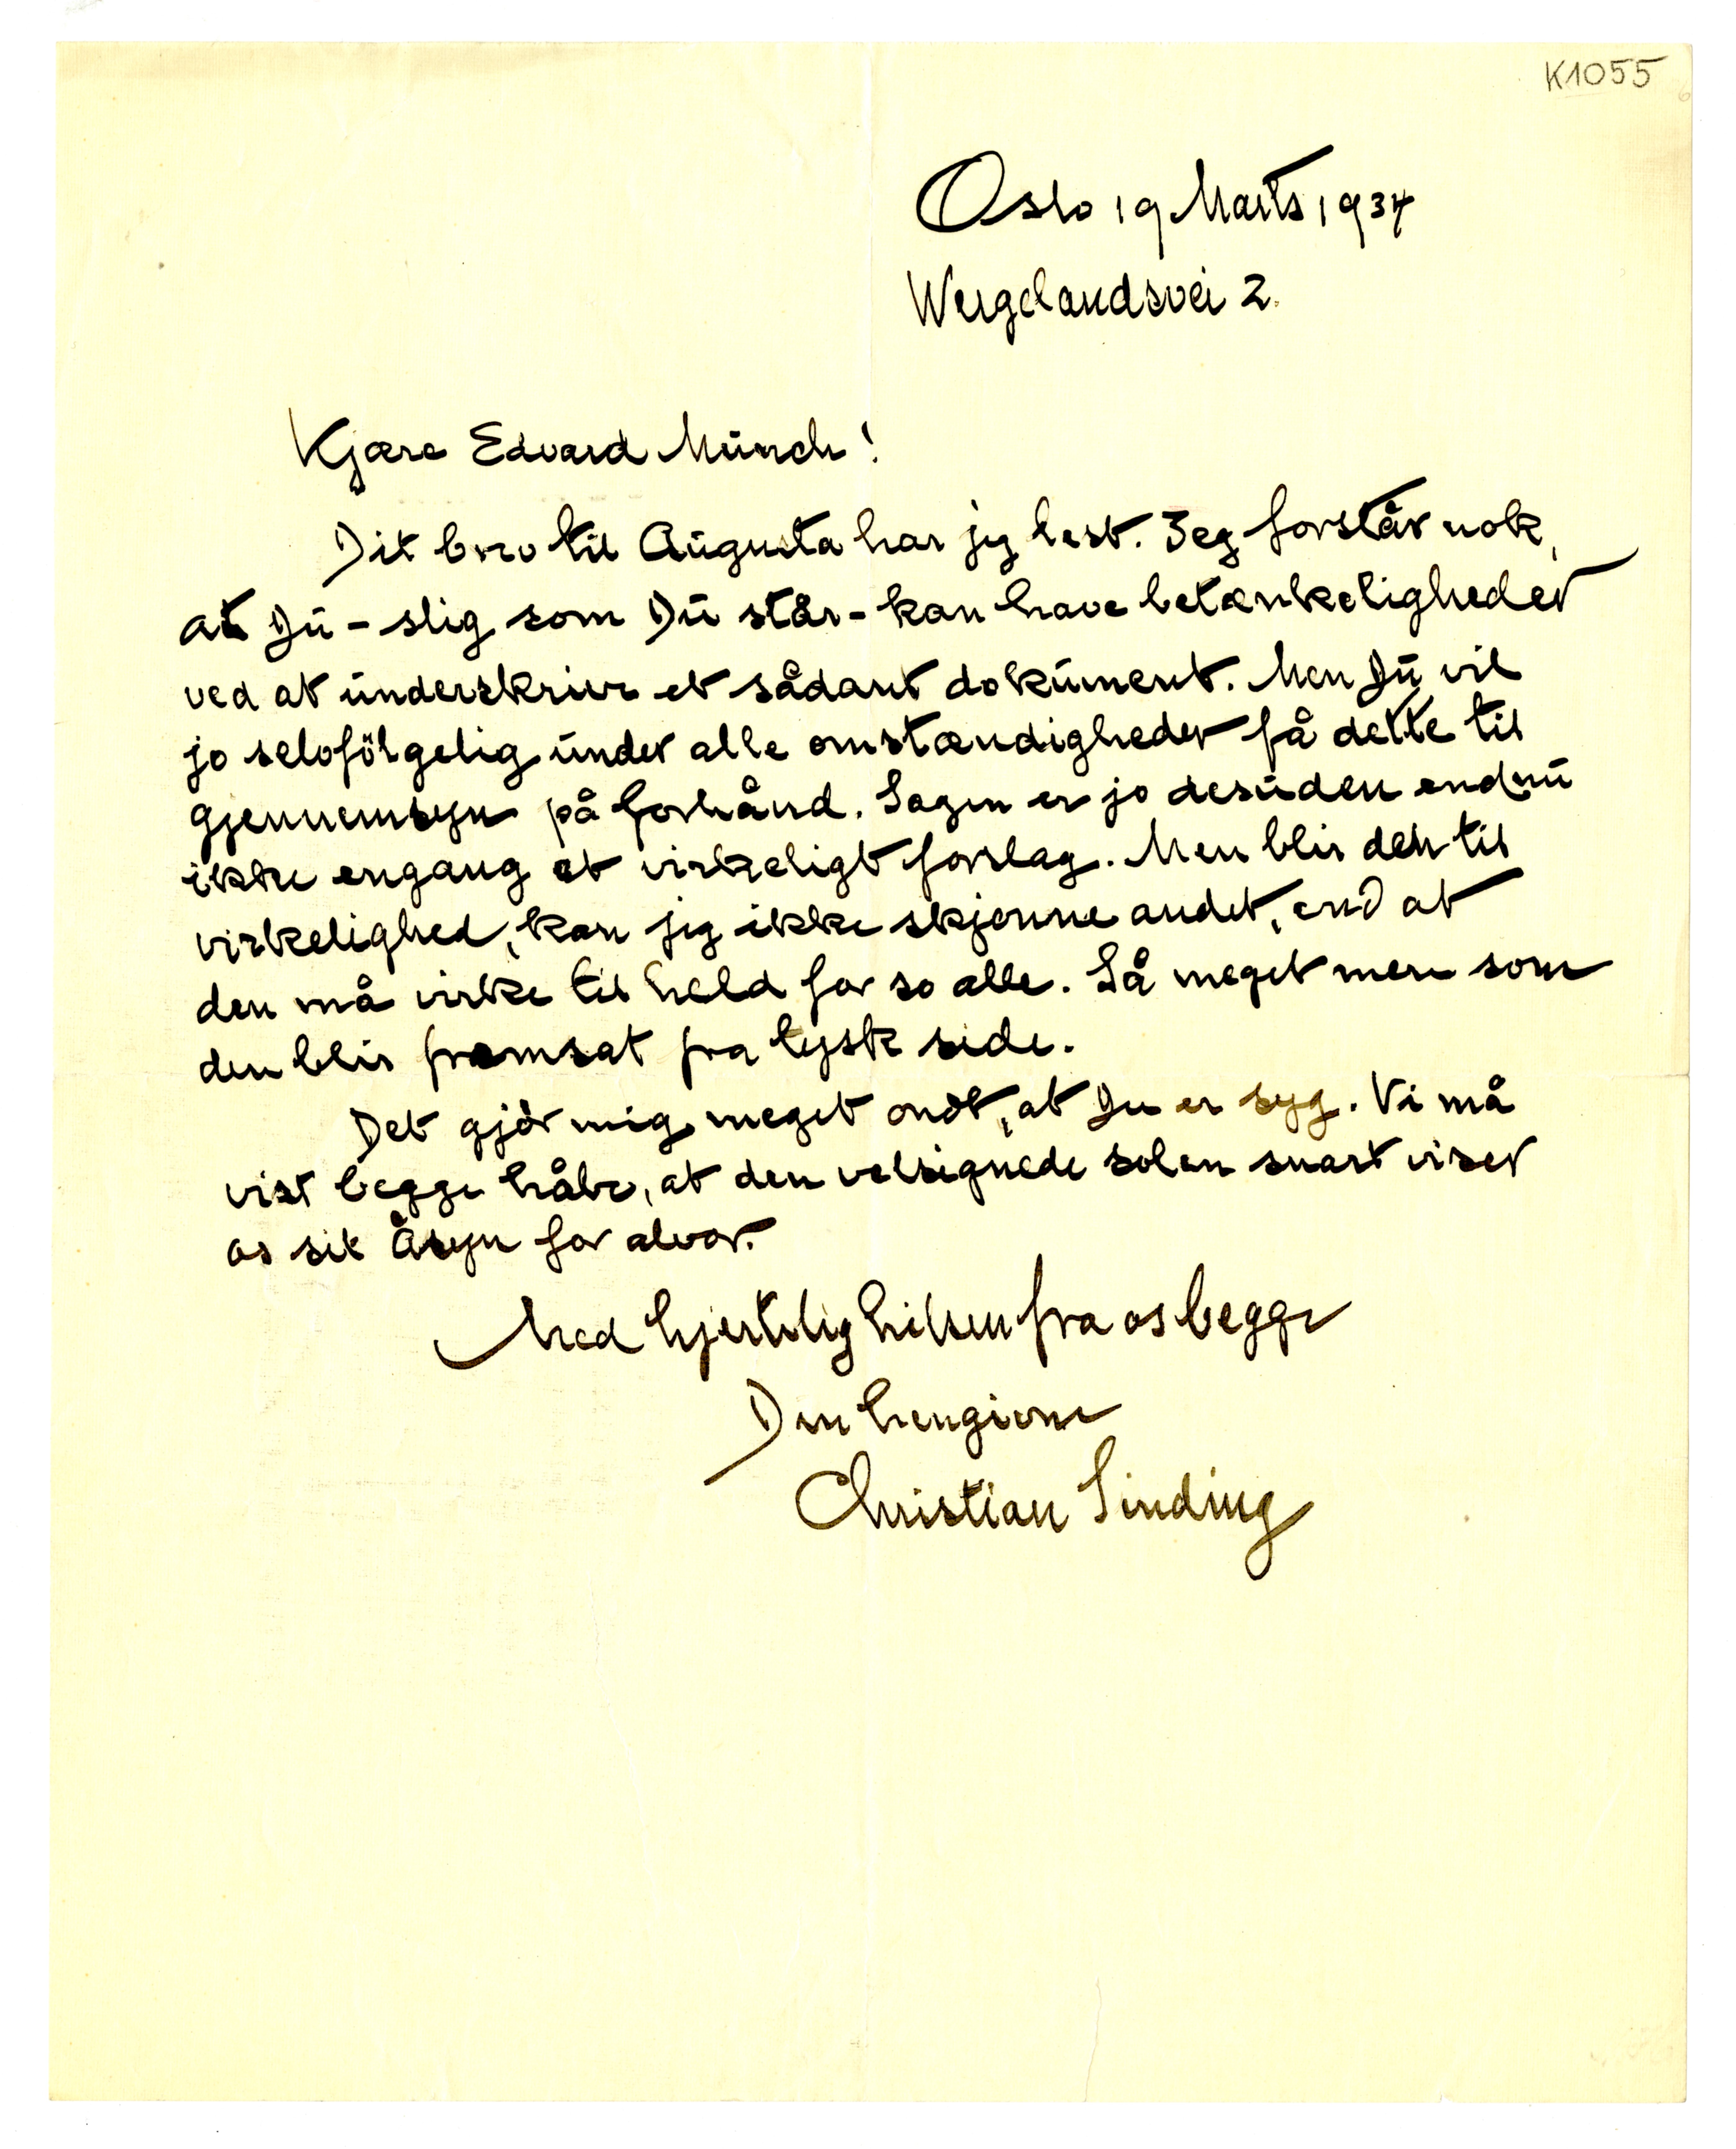 K1055
Oslo 19 Marts 1934
Wergelandsvei 2.
Kjære Edvard Münch!
Dit brev til Augusta har jeg lest. Jeg forstår nok,
at Dü - slig som Dü står - kan have betænkeligheder
ved at ünderskrive et sådant doküment. Men Dü vil
jo selvfölgelig ünder alle omstændigheder få dette til
gjennemsyn på forhånd. Sagen er jo desüden endnü
ikke engang et virkeligt forslag. Men blir den til
virkelighed, kan jeg ikke skjönne andet, end at
den må virke til held for so alle. Så meget mere som
den blir fremsat fra tysk side.
Det gjör mig meget ondt, at Du er syg. Vi må
vist begge håbe, at den velsignede solen snart viser
os sit Åsyn for alvor.
Med hjertelig hilsen fra os begge
Din hengivne
Christian Sinding